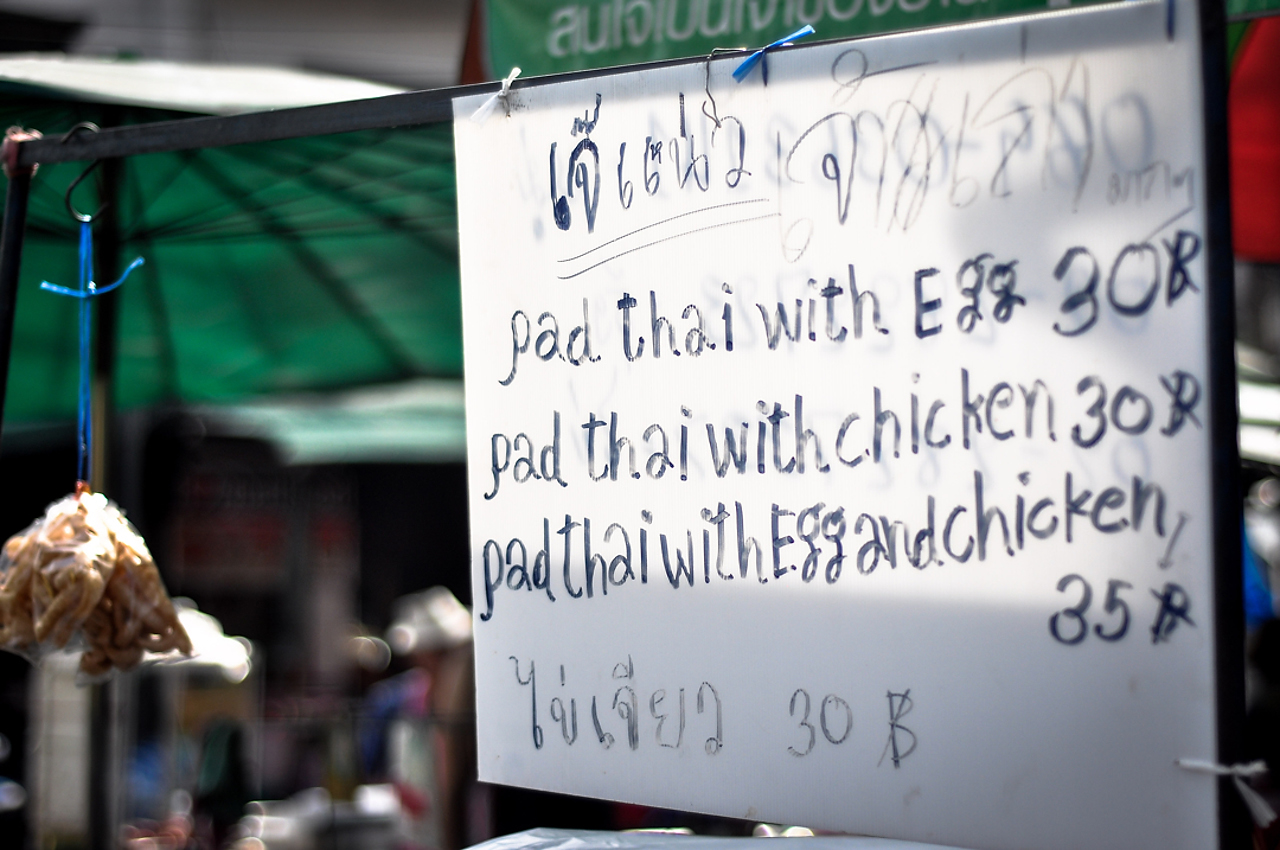 สนใจเป็นเจ้าของร้าน
เจ๊เหน่ว
pad thai with Egg 30฿
pad thai with chicken 30฿
pad thai with Egg and chicken,
35฿
ไข่เจียว 30 ฿